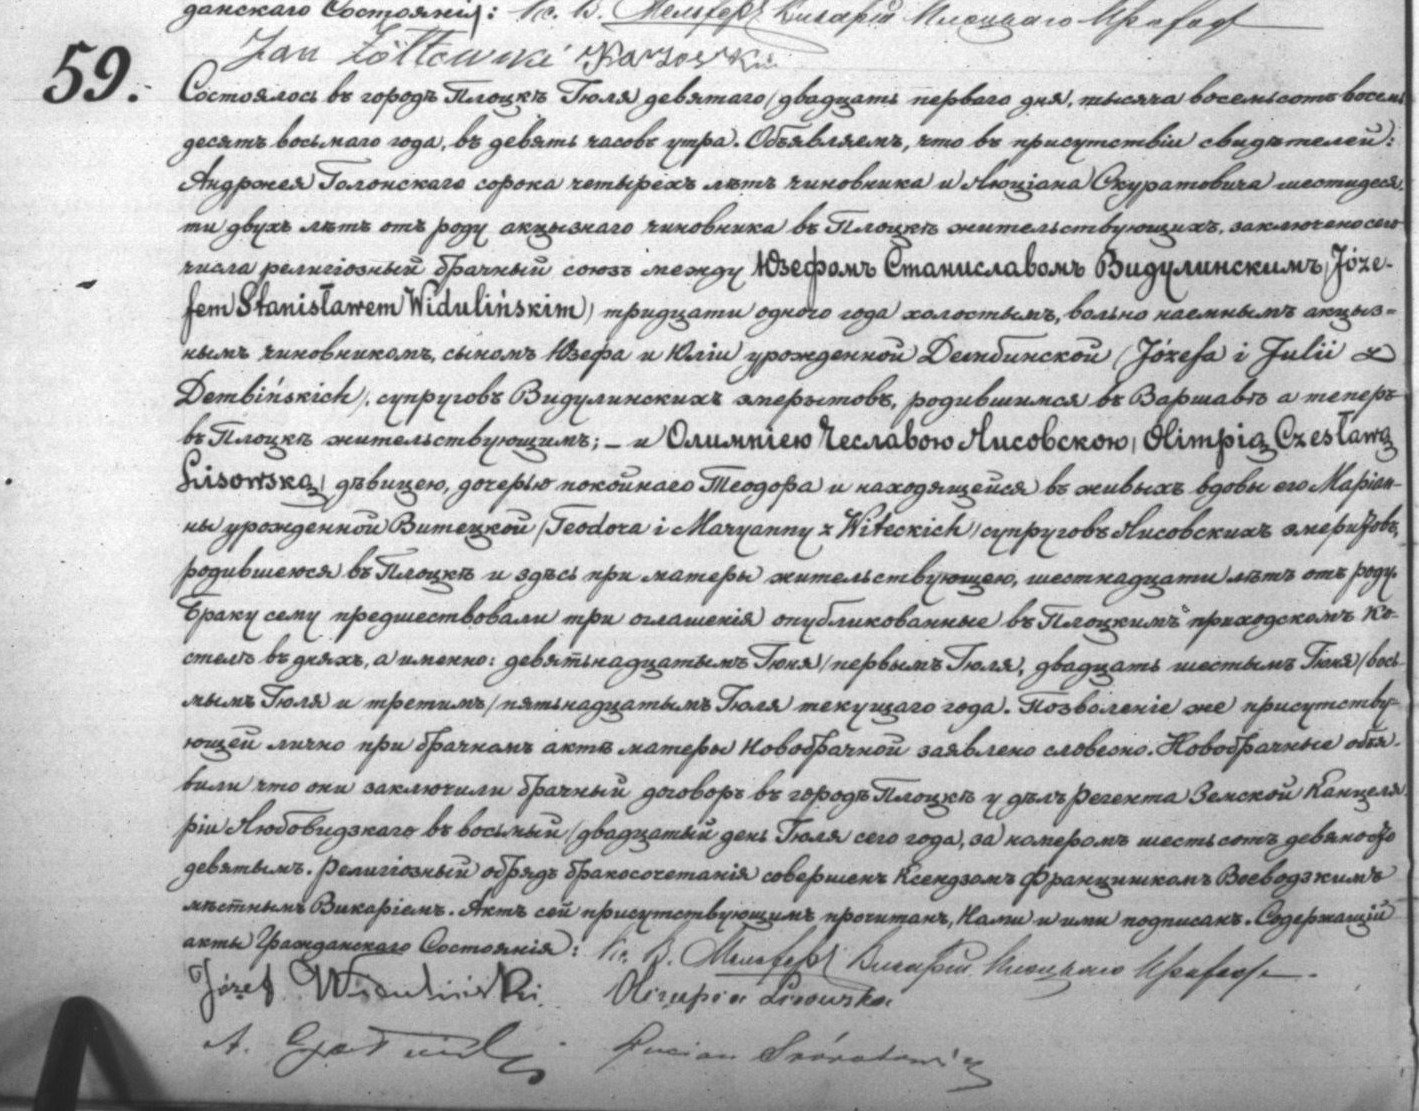 данскаго Состоянія: Кс. В. Мельцеръ Викарій Плоцкаго Прихода
Jan Żółtowski Karsowski
59.
Состоялось въ городѣ Плоцкѣ Іюля девятаго (двадцать перваго дня, тысяча восемьсотъ восемь
десятъ восьмаго года, въ девять часовъ утра. Объявляемъ, что въ присутствіи свидѣтелей:
Андржея Голонскаго сорока четырехъ лѣтъ чиновника и Люціана Скуратовича шестидеся-
ти двухъ лѣтъ отъ роду акцызнаго чиновника въ Плоцкѣ жительствующихъ, заключено сего
числа религіозный брачный союзъ между Юзефомъ Станиславомъ Видулинскимъ, (Józe-
fem Stanisławem Widulińskim) тридцати одного года холостымъ, вольно наемнымъ акцыз=
нымъ чиновникомъ, сыномъ Юзефа и Юліи урожденной Дембинской (Józefa i Julii z
Dembińskich), супруговъ Видулинскихъ эмерытовъ, родившимся въ Варшавѣ а теперь
въ Плоцкѣ жительствующимъ; – и Олимпіею Чеславою Лисовскою, (Olimpią Czesławą
Lisowską) дѣвицею, дочерью покойнаго Теодора и находящейся въ живыхъ вдовы его Маріан-
ны урожденной Витецкой (Teodora i Maryanny z Witeckich) супруговъ Лисовскихъ эмеритовъ,
родившеюся въ Плоцкѣ и здѣсь при матеры жительствующею, шестнадцати лѣтъ отъ роду.
Браку сему предшествовали три оглашенія опубликованные въ Плоцкимъ приходскомъ ко-
стелѣ въ дняхъ, а именно: девятьнадцатымъ Іюня (первымъ Іюля, двадцать шестымъ Іюня (вось-
мымъ Іюля и третимъ (пятьнадцатымъ Іюля текущаго года. Позволеніе же присутству-
ющей лично при брачномъ актѣ матеры новобрачной заявлено словесно. Новобрачные объя-
вили что они заключили брачный договоръ въ городѣ Плоцкѣ у дѣлъ Регента Земской Канцеля
ріи Любовидзкаго въ восьмый (двадцатый день Іюля сего года, за номеромъ шестьсотъ девяносто
девятымъ. Религіозный обрядъ бракосочетанія совершенъ Ксендзомъ Францишкомъ Воеводзкимъ
мѣстнымъ Викаріемъ. Актъ сей присутствующимъ прочитанъ, Нами и ими подписанъ. Содержащій
акты Гражданскаго Состоянія: Кс. В. Мельцеръ Викарій Плоцкаго Прихода.
Józef Widuliński Olimpia Lisowska
A. Lucian Skóratowicz